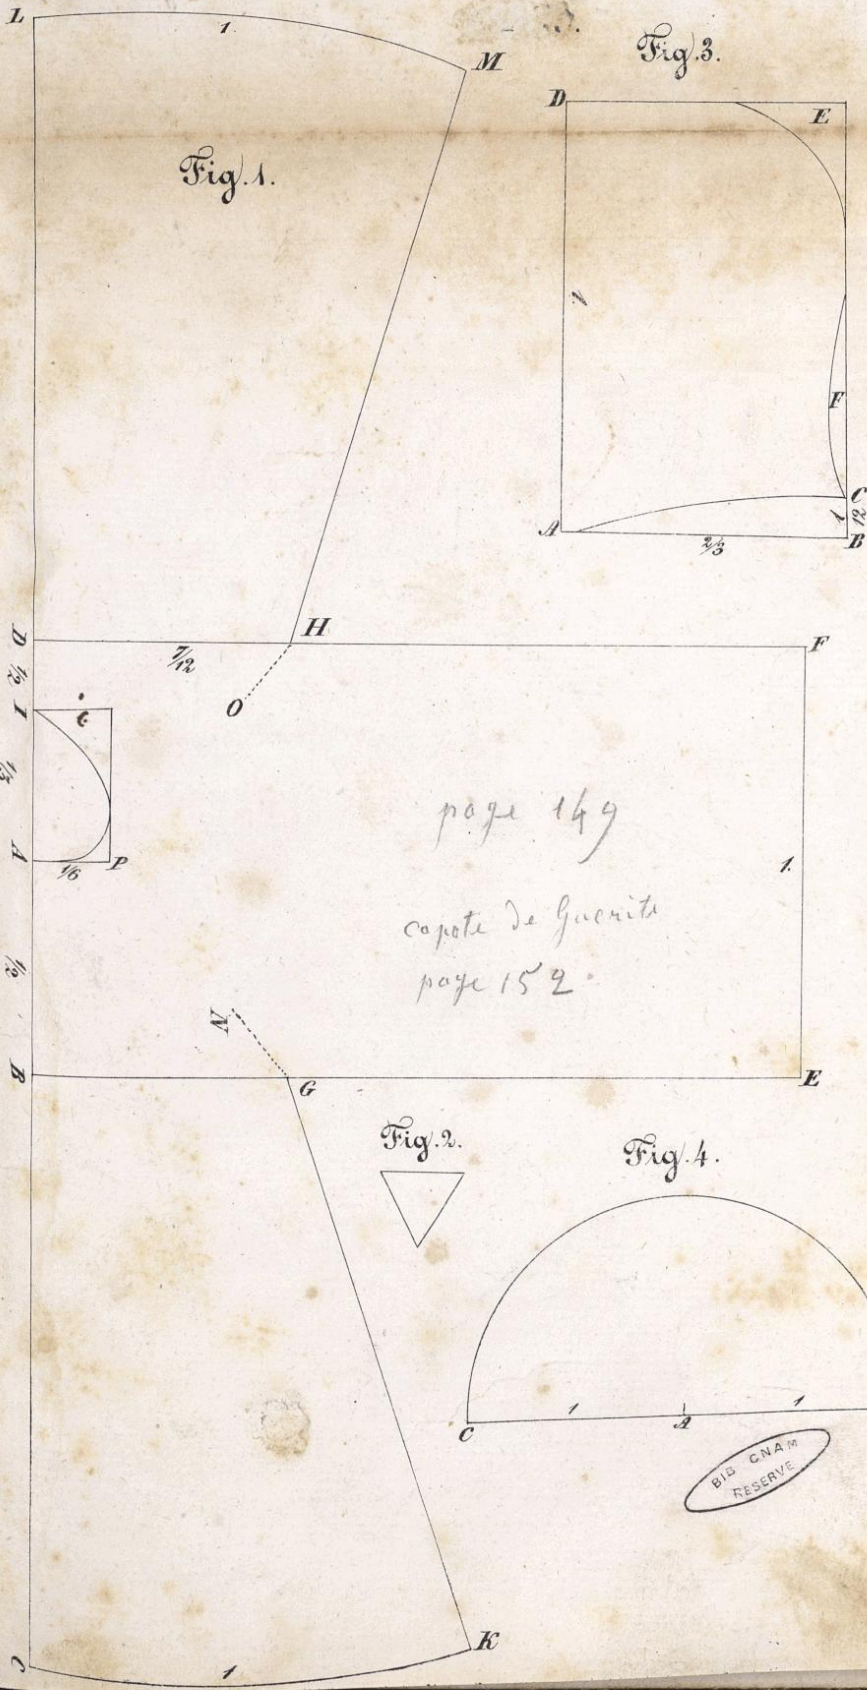 L
1.
M
Fig. 1.
Fig. 3.
D
E
1
F
C
1/12
A
2/3
B
D
7/12
H
F
1/2
O
I
1/3
A
1/6
P
page 149
1.
capote de Guerite
page 152
1/2
N
B
G
E
Fig. 2.
Fig. 4.
1
1
C
A
BIB CNAM
RESERVE
K
C
1